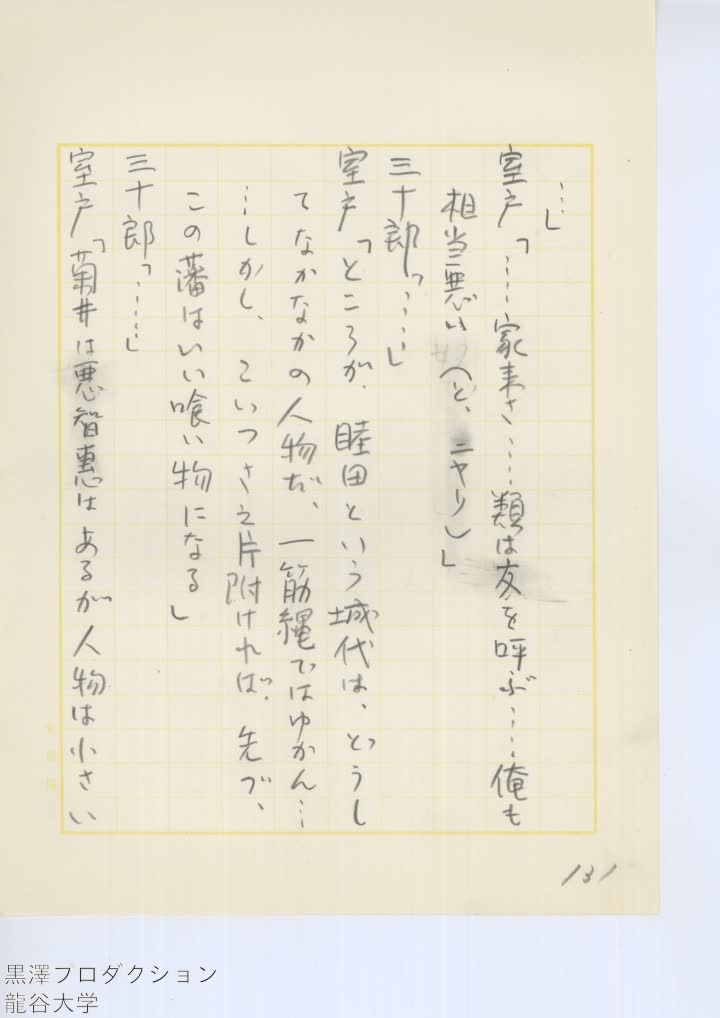 …」
室戸「……家来さ……類は友を呼ぶ……俺も
相当悪い(と、ニヤリ)」
三十郎「……」
室戸「ところが、睦田という城代は、どうし
てなかなかの人物だ、一筋縄ではゆかん…
…しかし、こいつさえ片附ければ、先づ、
この藩はいい喰い物になる」
三十郎「……」
室戸「菊井は悪智恵はあるが人物は小さい
131
黒澤プロダクション
龍谷大学